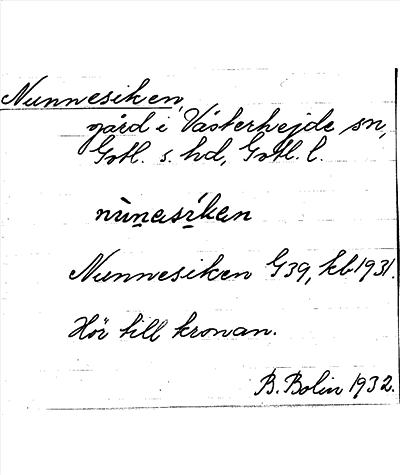 Nunnesiken,
gård i Västerhejde sn,
Gotl. s. hd, Gotl. l.
nùnasíkan
Nunnesiken G39, kb 1931.
Hör till kronan.
B. Bolin 1932.